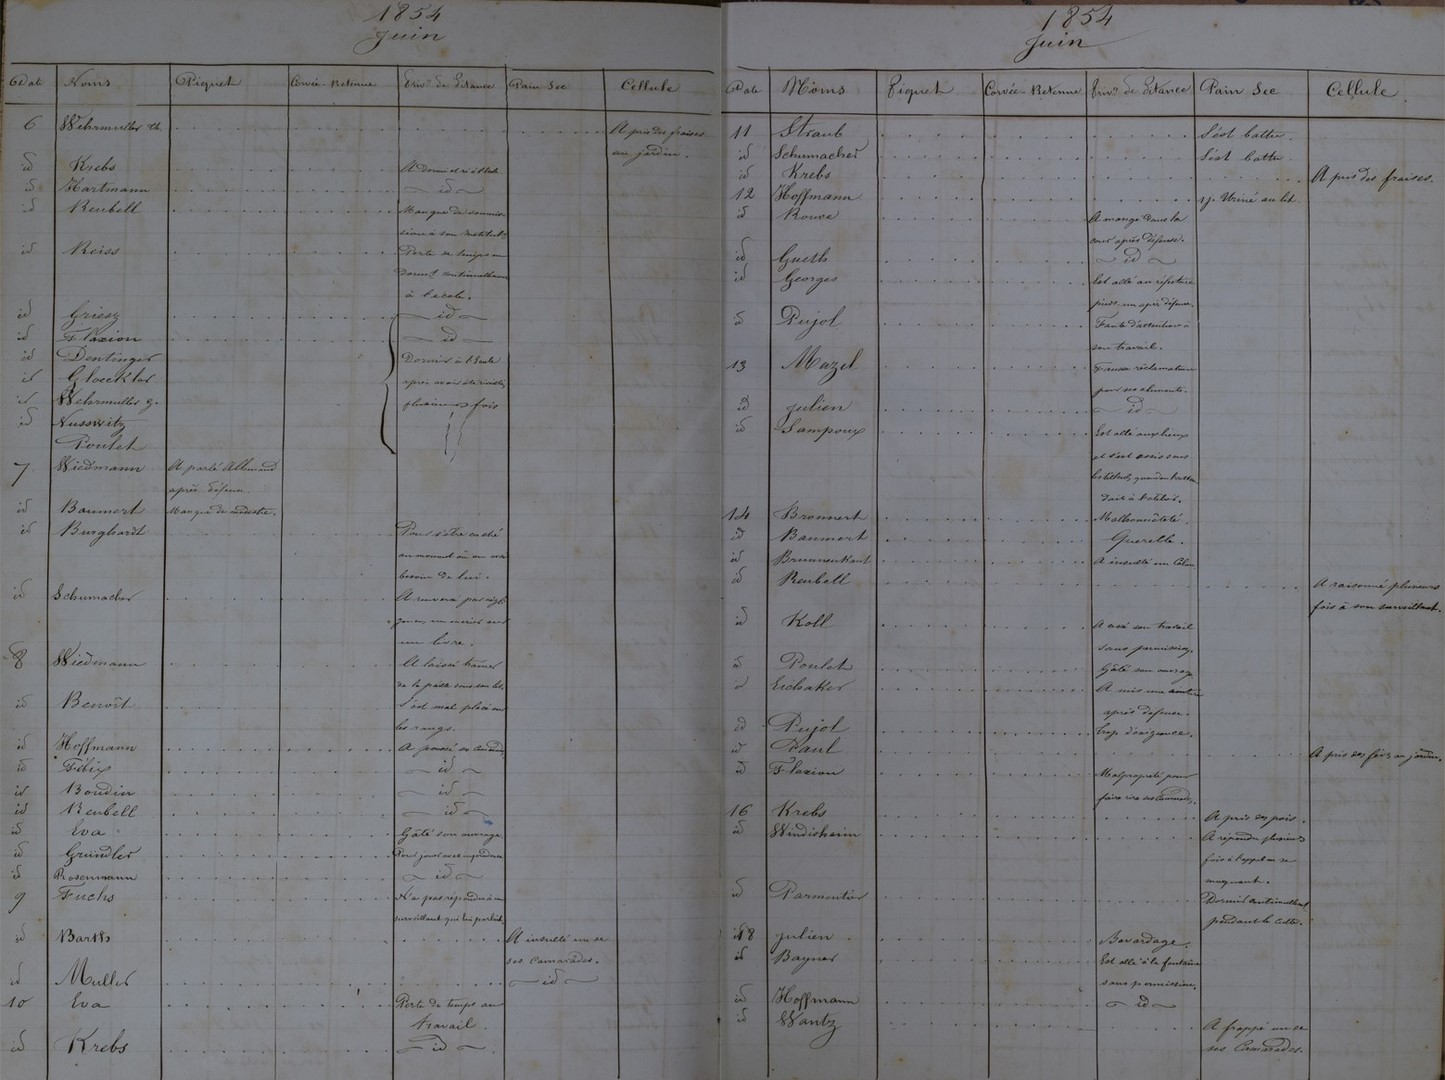 1854
Juin
Date Noms Piquet Corvée-Retenue Priv.on de Pitance Pain Sec Cellule
6 Wehrmuller Ch. A pris des fraises
au jardin.
id Krebs A Dormi à
id Hartmann id
id Reubell Manque de soumis-
sion à son
id Reiss Perte de temps en
dormant continuellement
à l'école.
id Griesz id
id Flaxion id
id Dentinger Dormir à l'Ecole
id Gloeckler après avoir été
id Wehrmuller g. plusieurs fois
id Nusswitz
Poulet
7 Wiedmann A parlé Allemand
après défense.
id Baumert Manque de modestie.
id Burghardt Pour s'être caché
au moment où on avait
besoin de lui.
id Schumacher A par négli-
gence, un encrier sur
un livre.
8 Wiedmann A laissé traîner
de la paille sous son lit.
id Benoît S'est mal placé en
les rangs.
id Hoffmann A poussé ses
id Félix id
id Boudier id
id Reubell id
id Eva Gâté son ouvrage
id Gründler
id Rosenmann id
9 Fuchs N'a pas répondu à un
surveillant qui lui parlait
id Barth A insulté un de
ses Camarades.
id Muller id
10 Eva Perte de temps au
travail.
id Krebs id
1854
Juin
Date Noms Piquet Corvée-Retenue Priv.on de Pitance Pain Sec Cellule
11 Straub S'est battu.
id Schumacher S'est battu
id Krebs A pris des fraises.
12 Hoffmann Uriné au lit.
id Rouve A mangé dans la
cour après défense.
id Gueth id
id Georges Est allé au réfectoire
après défense.
id Pujol Faute d'attention à
son travail.
13 Mazel Fausse réclamation
pour
id julien id
id Sampoux Est allé aux lieux
et s'est assis sous
14 Bronnert Malhonnêteté.
id Baumert Querelle.
id Brunnenkant A insulté un
id Reubell A raisonné plusieurs
fois à son surveillant.
id Koll A son travail
sans permission.
id Poulet Gâté son ouvrage
id Eichaker A mis une
après défense.
id Pujol trop d'exigence.
id Paul A pris des au jardin.
id Flaxion Malpropreté pour
faire rire ses Camarades.
16 Krebs A pris des pois.
id Windisheim A répondu plusieurs
fois à l'appel en se
moquant.
id Parmentier Dormir continuellement
pendant le culte.
18 julien Bavardage.
id Bayner Est allé à la fontaine
sans permission.
id Hoffmann id
id Wantz A frappé un de
ses Camarades.